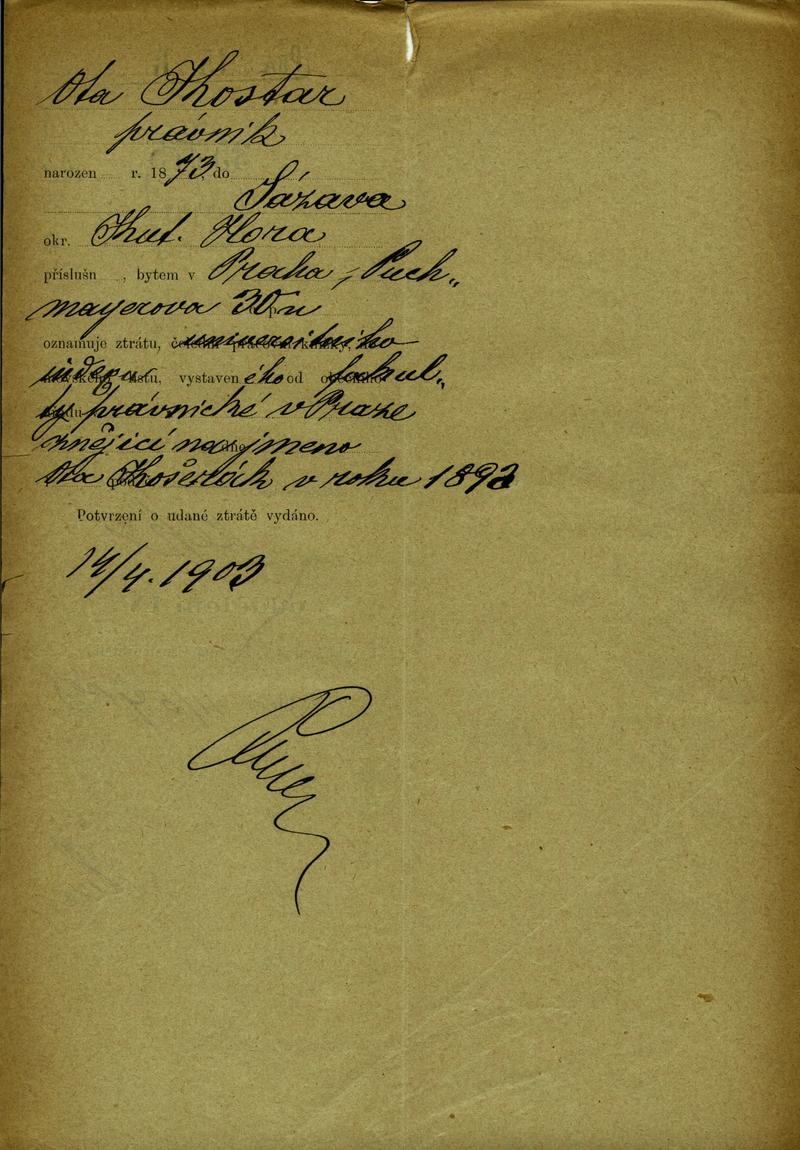 Ota Kostar
právnik
narozen r. 1873, do
Sázava
okr. Kut. Hora
příslušn , bytem v Praha, Puch„
mayerova 30 n
oznamuje ztrátu, universitního
indexu, vystaveného od fakul„
ty právnické v Praze
znějící na jmeno
Ota v roku 1892
Potvrzení o udané ztrátě vydáno.
14/4. 1903